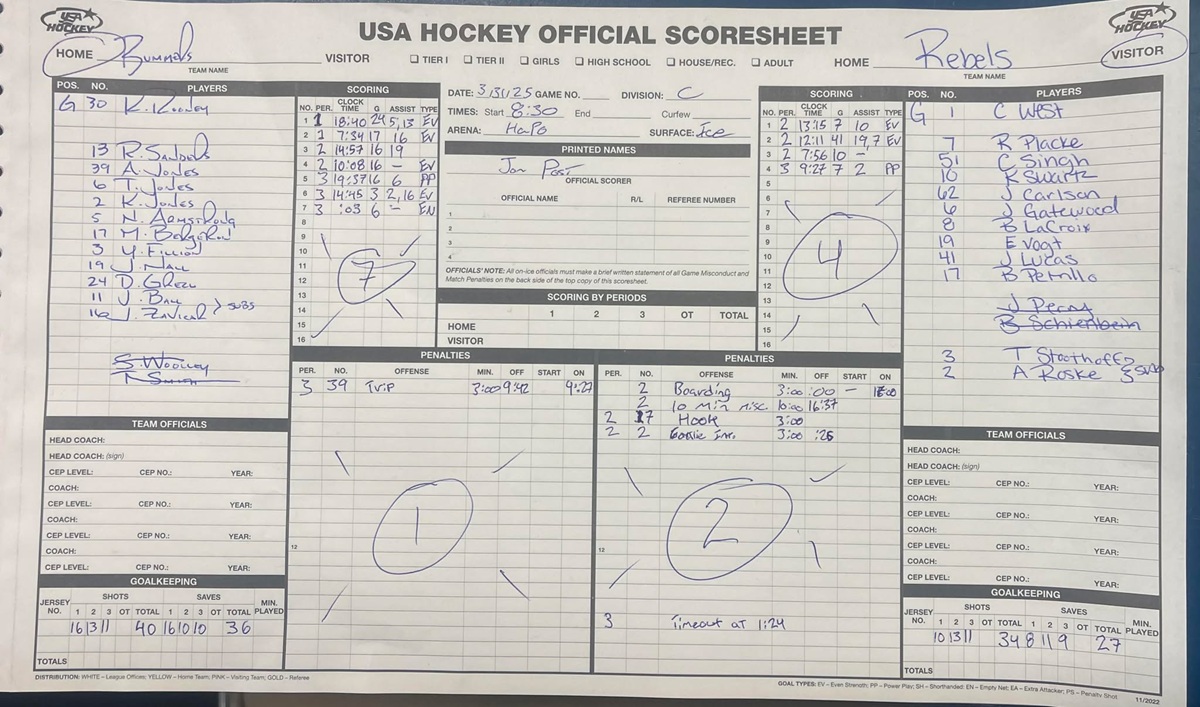 USA HOCKEY
USA HOCKEY OFFICIAL SCORESHEET
USA HOCKEY
HOME Bummels VISITOR ☐ TIER I ☐ TIER II ☐ GIRLS ☐ HIGH SCHOOL ☐ HOUSE/REC. ☐ ADULT HOME Rebels VISITOR
TEAM NAME TEAM NAME
POS. NO. PLAYERS
G 30 K. Rooney
13 R. Sanders
39 A. Jones
6 T. Jones
2 K. Jones
5 N. Armstrong
17 M.
3 Y. Fillion
19 J. Nall
24 D. Green
11 J. Ball
16 J. } SUBS
S. Woolley
TEAM OFFICIALS
HEAD COACH:
HEAD COACH: (sign)
CEP LEVEL: CEP NO.: YEAR:
COACH:
CEP LEVEL: CEP NO.: YEAR:
COACH:
CEP LEVEL: CEP NO.: YEAR:
COACH:
CEP LEVEL: CEP NO.: YEAR:
GOALKEEPING
SHOTS SAVES
JERSEY NO. 1 2 3 OT TOTAL 1 2 3 OT TOTAL MIN. PLAYED
16 13 11 40 16 10 10 36
TOTALS
SCORING
NO. PER. CLOCK TIME G ASSIST TYPE
1 1 18:40 24 5,13 EV
2 1 7:34 17 16 EV
3 2 14:57 16 19
4 2 10:08 16 – EV
5 3 19:37 16 6 PP
6 3 14:45 3 2,16 EV
7 3 :03 6 – EN
8
9
10
11
12
13
14
15
16
7
DATE: 3/31/25 GAME NO. DIVISION: C
TIMES: Start 8:30 End Curfew
ARENA: HaPo SURFACE: Ice
PRINTED NAMES
Jon Post
OFFICIAL SCORER
OFFICIAL NAME R/L REFEREE NUMBER
1
2
3
4
OFFICIALS' NOTE: All on-ice officials must make a brief written statement of all Game Misconduct and
Match Penalties on the back side of the top copy of this scoresheet.
SCORING BY PERIODS
1 2 3 OT TOTAL
HOME
VISITOR
SCORING
NO. PER. CLOCK TIME G ASSIST TYPE
1 2 13:15 7 10 EV
2 2 12:11 41 19,7 EV
3 2 7:56 10 –
4 3 9:27 7 2 PP
5
6
7
8
9
10
11
12
13
14
15
16
4
PENALTIES
PER. NO. OFFENSE MIN. OFF START ON
3 39 Trip 3:00 9:42 9:27
12
1
PENALTIES
PER. NO. OFFENSE MIN. OFF START ON
2 Boarding 3:00 :00 –
2 10 Min misc. 10:00 16:37
2 17 Hook 3:00
2 2 Goalie Inr. 3:00 :26
12
2
3 Timeout at 1:24
POS. NO. PLAYERS
G 1 C West
7 R Placke
51 C Singh
10 K Swartz
62 J Carlson
6 J Gatewood
8 B LaCroix
19 E Vogt
41 J Lucas
17 B Petrillo
J Percy
B Schienbein
3 T Stoothoff
2 A Roske } SUBS
TEAM OFFICIALS
HEAD COACH:
HEAD COACH: (sign)
CEP LEVEL: CEP NO.: YEAR:
COACH:
CEP LEVEL: CEP NO.: YEAR:
COACH:
CEP LEVEL: CEP NO.: YEAR:
COACH:
CEP LEVEL: CEP NO.: YEAR:
GOALKEEPING
SHOTS SAVES
JERSEY NO. 1 2 3 OT TOTAL 1 2 3 OT TOTAL MIN. PLAYED
10 13 11 34 8 11 9 27
TOTALS
DISTRIBUTION: WHITE – League Offices; YELLOW – Home Team; PINK – Visiting Team; GOLD – Referee
GOAL TYPES: EV – Even Strength; PP – Power Play; SH – Shorthanded; EN – Empty Net; EA – Extra Attacker; PS – Penalty Shot
11/2022